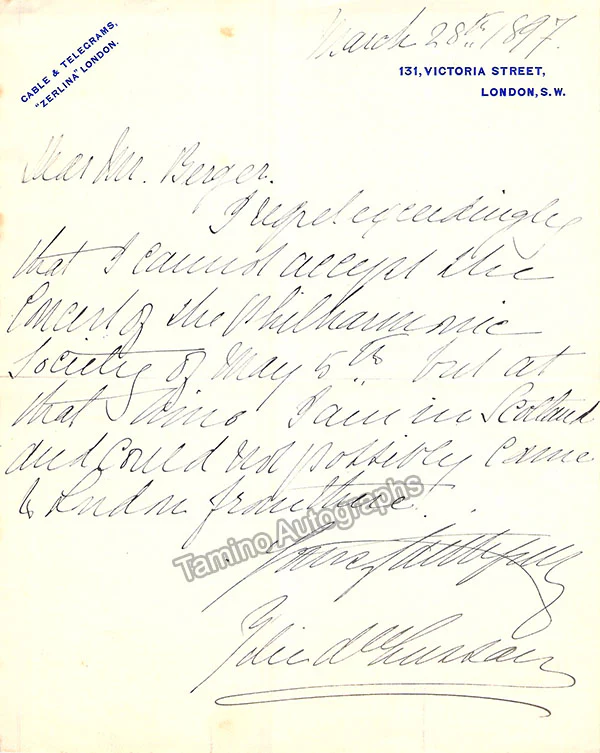 CABLE & TELEGRAMS,
"ZERLINA" LONDON.
March 28th 1897.
131, VICTORIA STREET,
LONDON, S.W.
Dear Mr. Berger.
I regret exceedingly
that I cannot accept the
Concert of the Philharmonic
Society of May 5th but at
that time I am in Scotland
and could not possibly come
to London from there.
Tamino Autographs
Yours faithfully
Zélie de Lussan